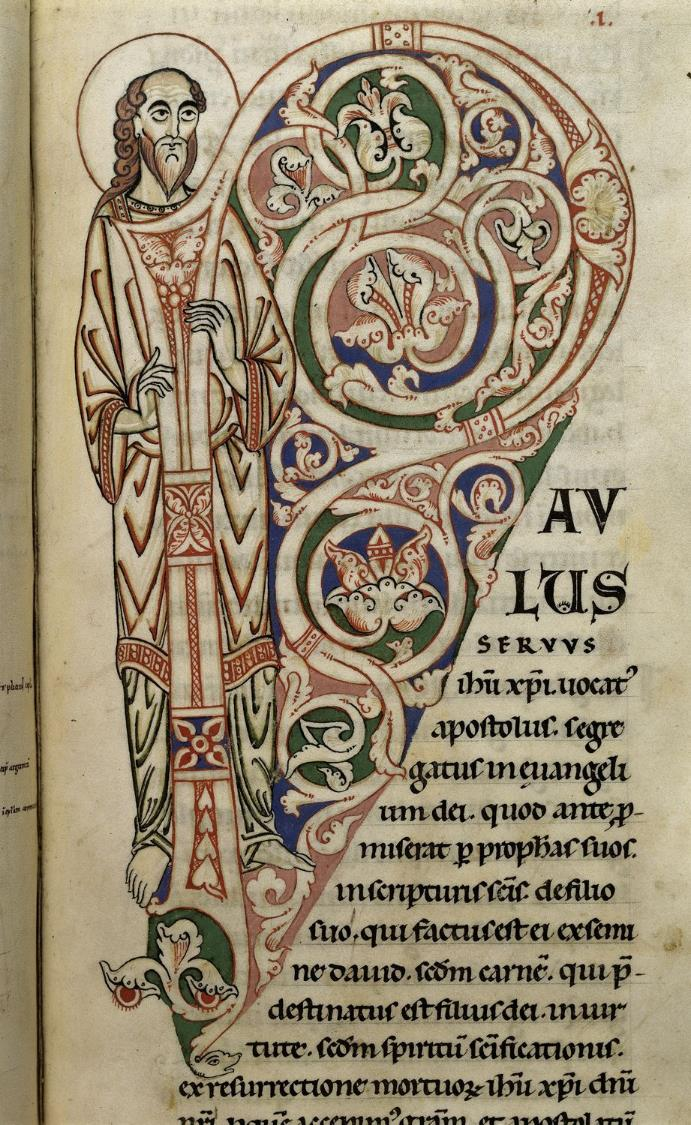 .I.
AV
LUS
SERVVS
ihū xp̄i. uocat᾽
apostolus. segre
gatus in euangeli
um dei. quod ante p̱-
miserat p̱ prophās suos.
in scripturis sc̄is. de filio
suo. qui factus est ei ex semi
ne dauid. scd̄m carnē. qui p̄-
destinatus est filius dei. in uir
tute. scd̄m spiritū sc̄ificationis.
ex resurrectione mortuoꝝ ihū xp̄i dn̄i
nr̄i. accepim᾽ grām. et apostolatū